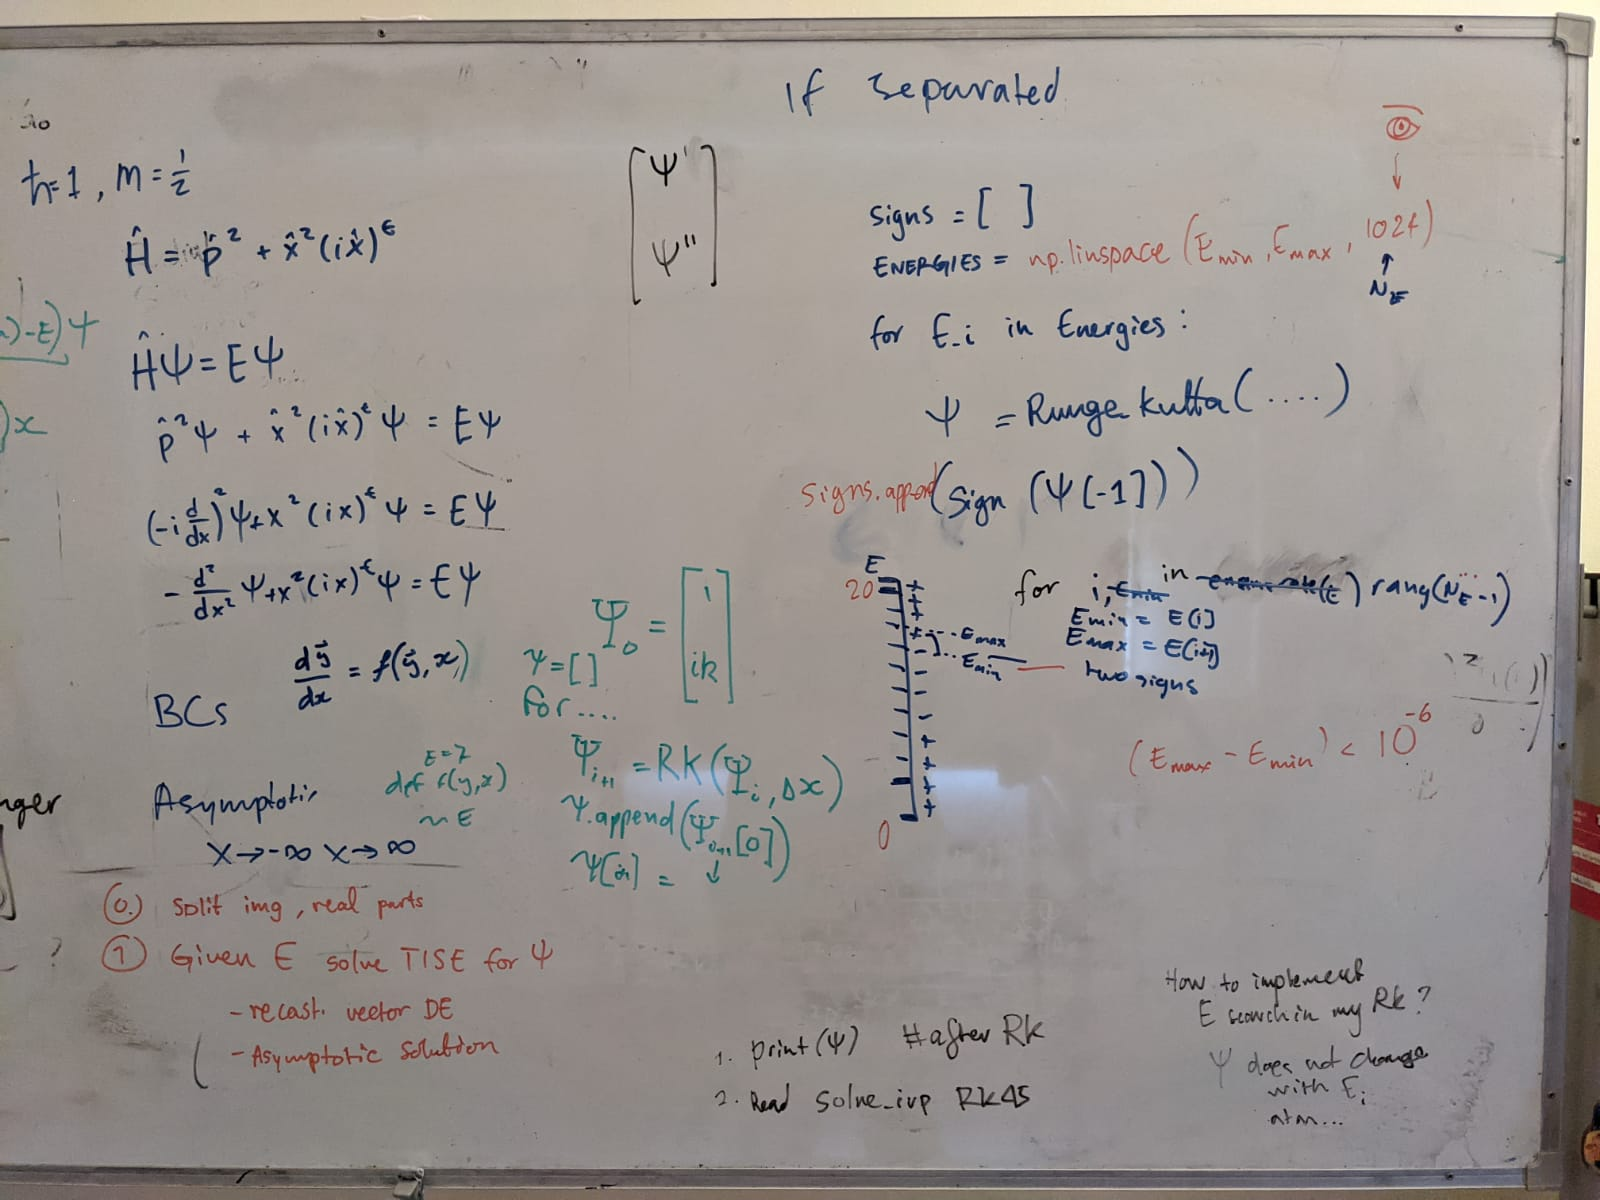 ħ=1, m=1/2
Ĥ = p̂² + x̂²(ix̂)^ε
-E)ψ
ĤΨ=EΨ
)x
p̂²Ψ + x̂²(ix̂)^ε Ψ = EΨ
(-i d/dx)²Ψ+x²(ix)^ε Ψ = EΨ
- d²/dx² Ψ+x²(ix)^ε Ψ = EΨ
dy⃗/dx = f(y⃗,x)
BCs
E=7
def f(y,x)
~ E
nger
Asymptotic
X→-∞ X→∞
0. split img, real parts
1 Given E solve TISE for Ψ
- recast. vector DE
- Asymptotic solution
?
[Ψ'
Ψ"]
Ψ₀ = [1
ik]
Ψ=[]
for....
Ψᵢ₊₁ = RK(Ψᵢ, Δx)
Ψ.append(Ψᵢ₊₁[0])
↓
If separated
signs = [ ]
ENERGIES = np.linspace(Emin, Emax, 1024)
↑
N_E
for E_i in Energies:
Ψ = Runge kutta(....)
signs.append(sign (Ψ[-1]))
E
20
0
Emax
Emin
for i, Emin in enumerate(E) rang(N_E-1)
Emin = E[i]
Emax = E[i+1]
two signs
(Emax - Emin) < 10⁻⁶
1. print(Ψ) #after RK
2. Read solve_ivp RK45
How to implement
E search in my RK?
Ψ does not change
with Eᵢ
atm...